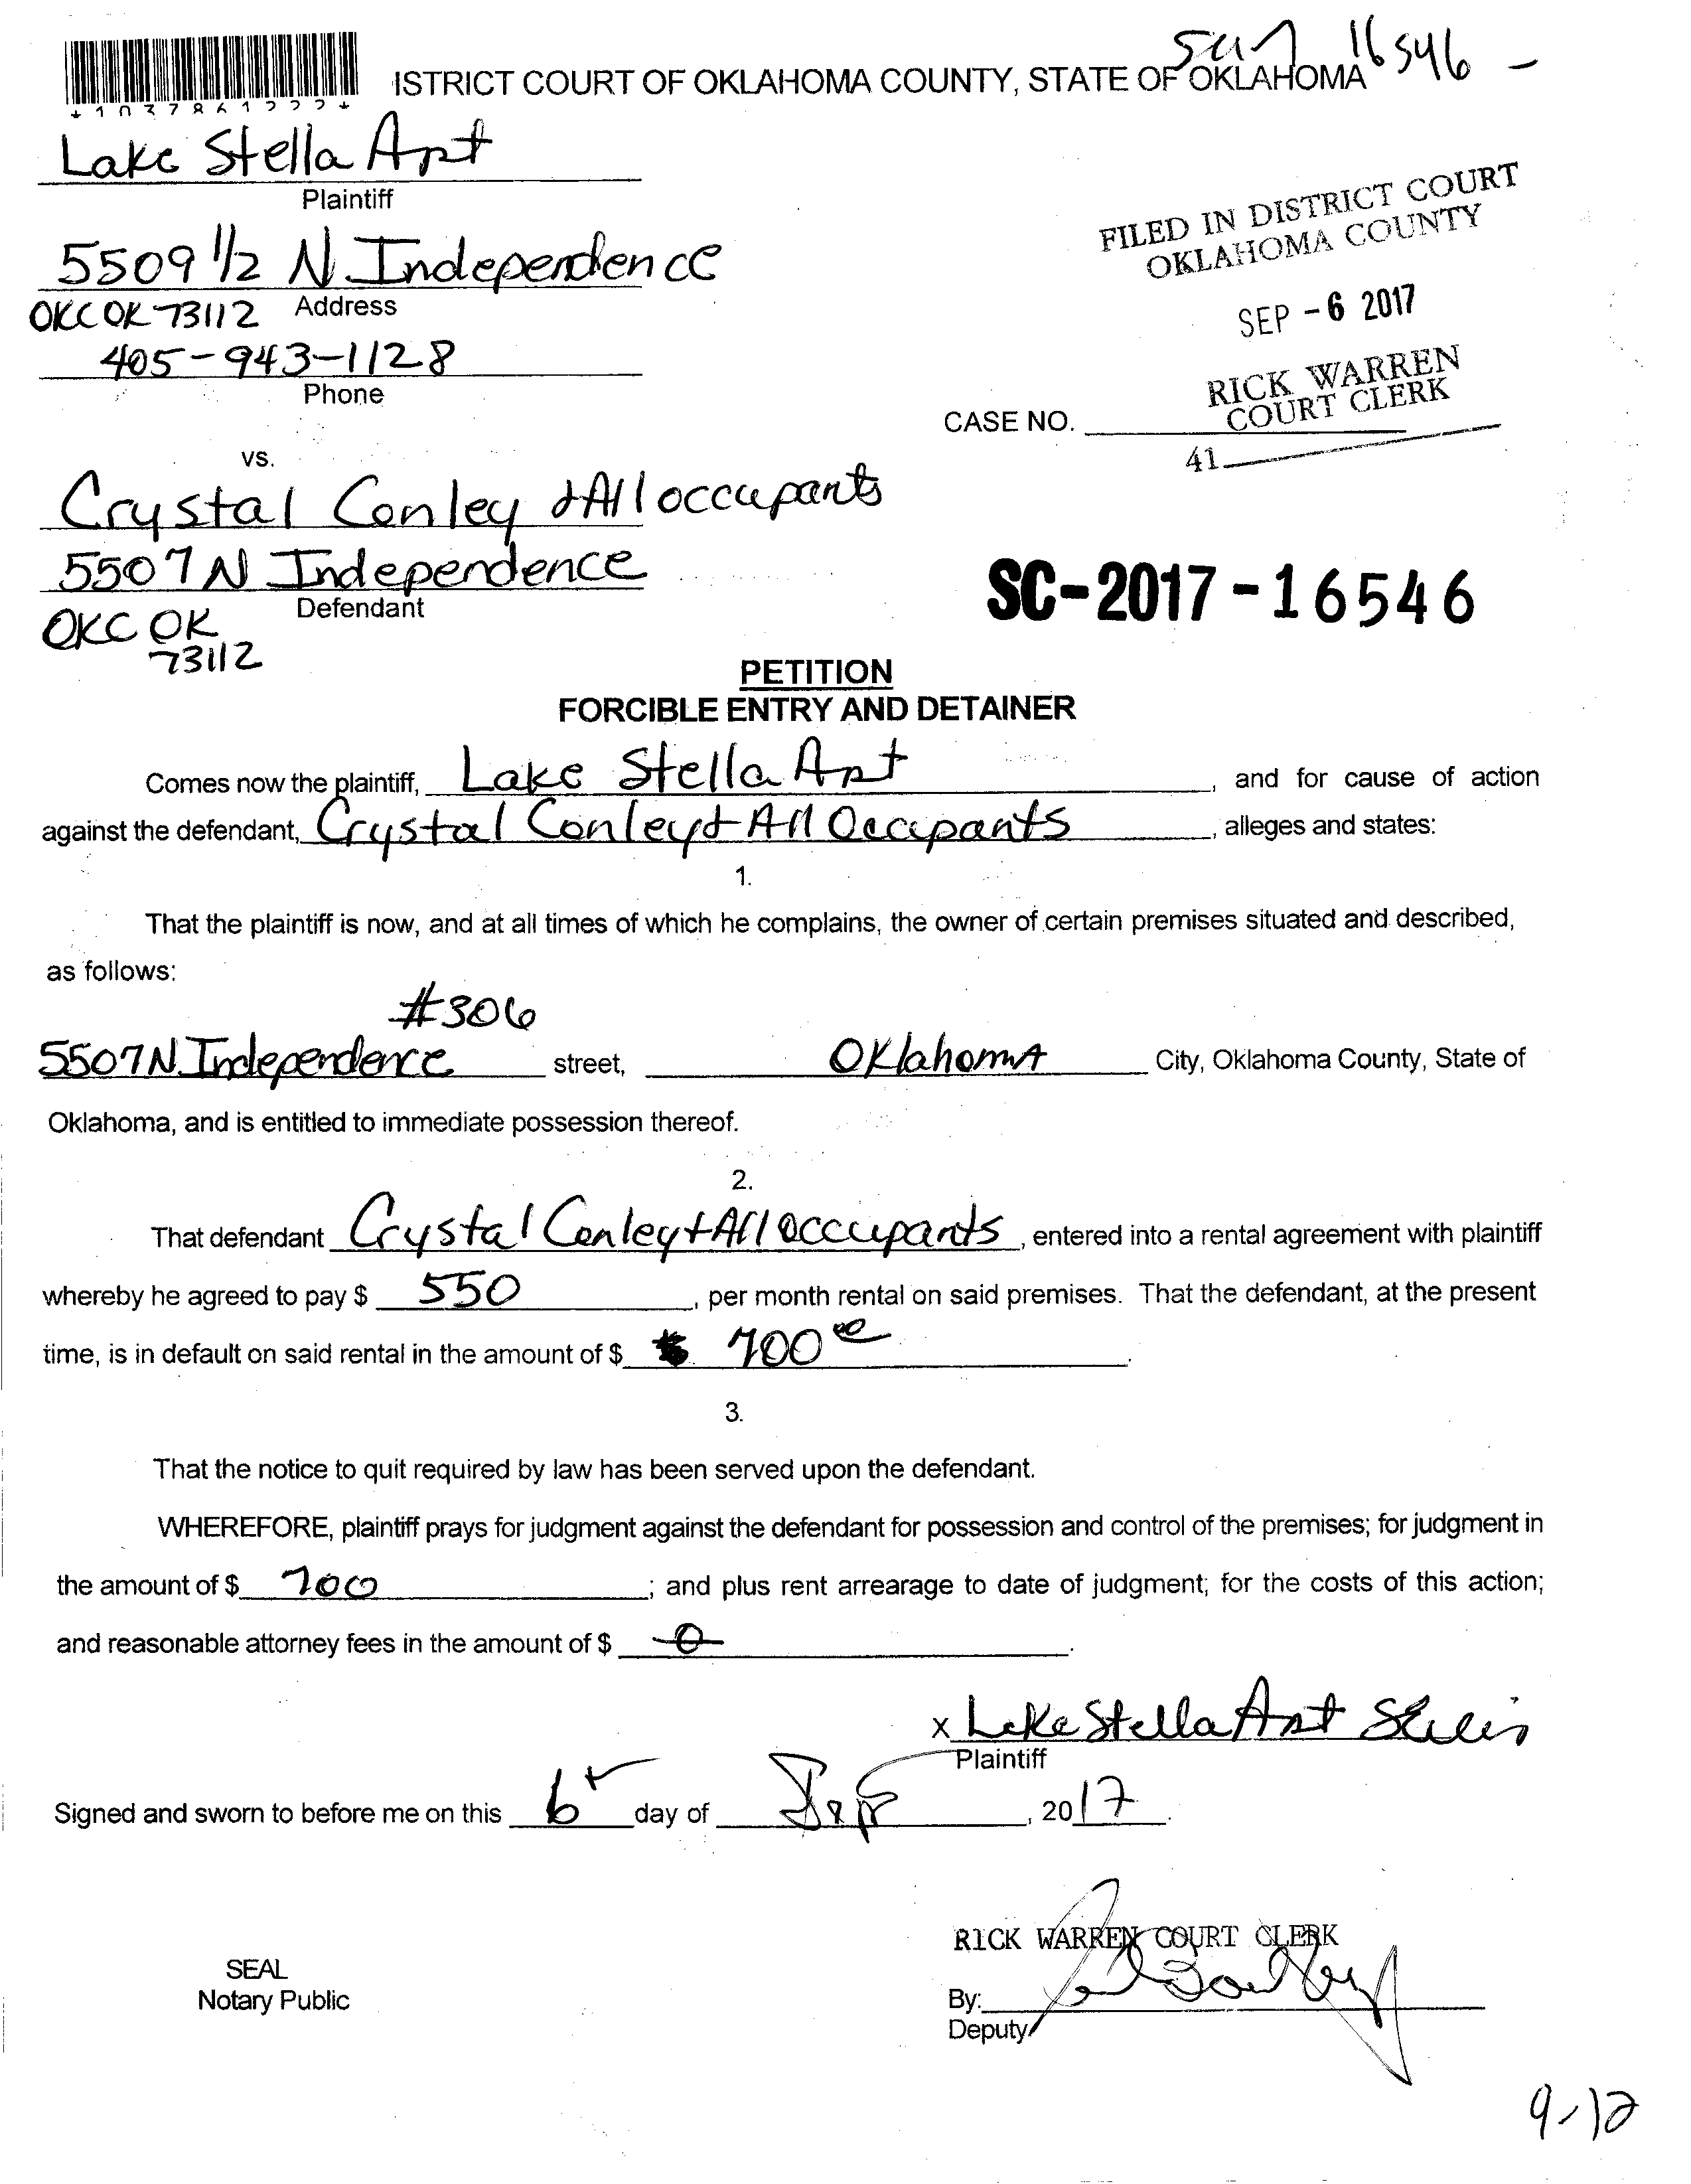 16546 -
ISTRICT COURT OF OKLAHOMA COUNTY, STATE OF OKLAHOMA
Lake Stella Apt
Plaintiff
FILED IN DISTRICT COURT
OKLAHOMA COUNTY
5509 1/2 N. Independence
Address
OKC OK 73112
SEP - 6 2017
405-943-1128
Phone
RICK WARREN
COURT CLERK
CASE NO.
41
vs.
Crystal Conley + All occupants
5507 N Independence
Defendant
OKC OK
73112
SC-2017-16546
PETITION
FORCIBLE ENTRY AND DETAINER
Comes now the plaintiff, Lake Stella Apt, and for cause of action
against the defendant, Crystal Conley + All Occupants, alleges and states:
1.
That the plaintiff is now, and at all times of which he complains, the owner of certain premises situated and described,
as follows:
#306
5507 N. Independence street, Oklahoma City, Oklahoma County, State of
Oklahoma, and is entitled to immediate possession thereof.
2.
That defendant Crystal Conley + All Occupants, entered into a rental agreement with plaintiff
whereby he agreed to pay $ 550, per month rental on said premises. That the defendant, at the present
time, is in default on said rental in the amount of $ 700 00.
3.
That the notice to quit required by law has been served upon the defendant.
WHEREFORE, plaintiff prays for judgment against the defendant for possession and control of the premises; for judgment in
the amount of $ 700; and plus rent arrearage to date of judgment; for the costs of this action;
and reasonable attorney fees in the amount of $ 0.
x Lake Stella Apt
Plaintiff
Signed and sworn to before me on this 6 day of Sep, 2017.
RICK WARREN COURT CLERK
SEAL
Notary Public
By:
Deputy
9-12